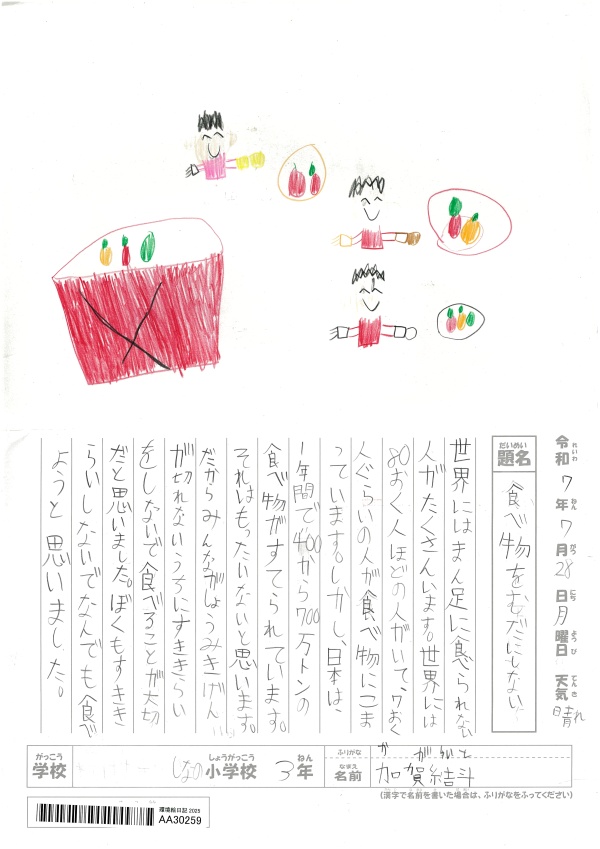 令和7年7月28日月曜日 天気晴れ
れいわ ねん がつ にち ようび てんき
だいめい
題名 食べ物をむだにしない
世界にはまん足に食べられない
人がたくさんいます。世界には
80おく人ほどの人がいて、7おく
人ぐらいの人が食べ物にこま
っています。しかし、日本は、
1年間で400から700万トンの
食べ物がすてられています。
それはもったいないと思います。
だからみんながしょうみきげん
が切れないうちにすききらい
をしないで食べることが大切
だと思いました。ぼくもすきき
らいしないでなんでも食べ
ようと思いました。
がっこう しょうがっこう ねん
学校 しなの小学校 3年
ふりがな か が ゆいと
なまえ
名前 加賀結斗
(漢字で名前を書いた場合は、ふりがなをふってください)
環境絵日記 2025
AA30259